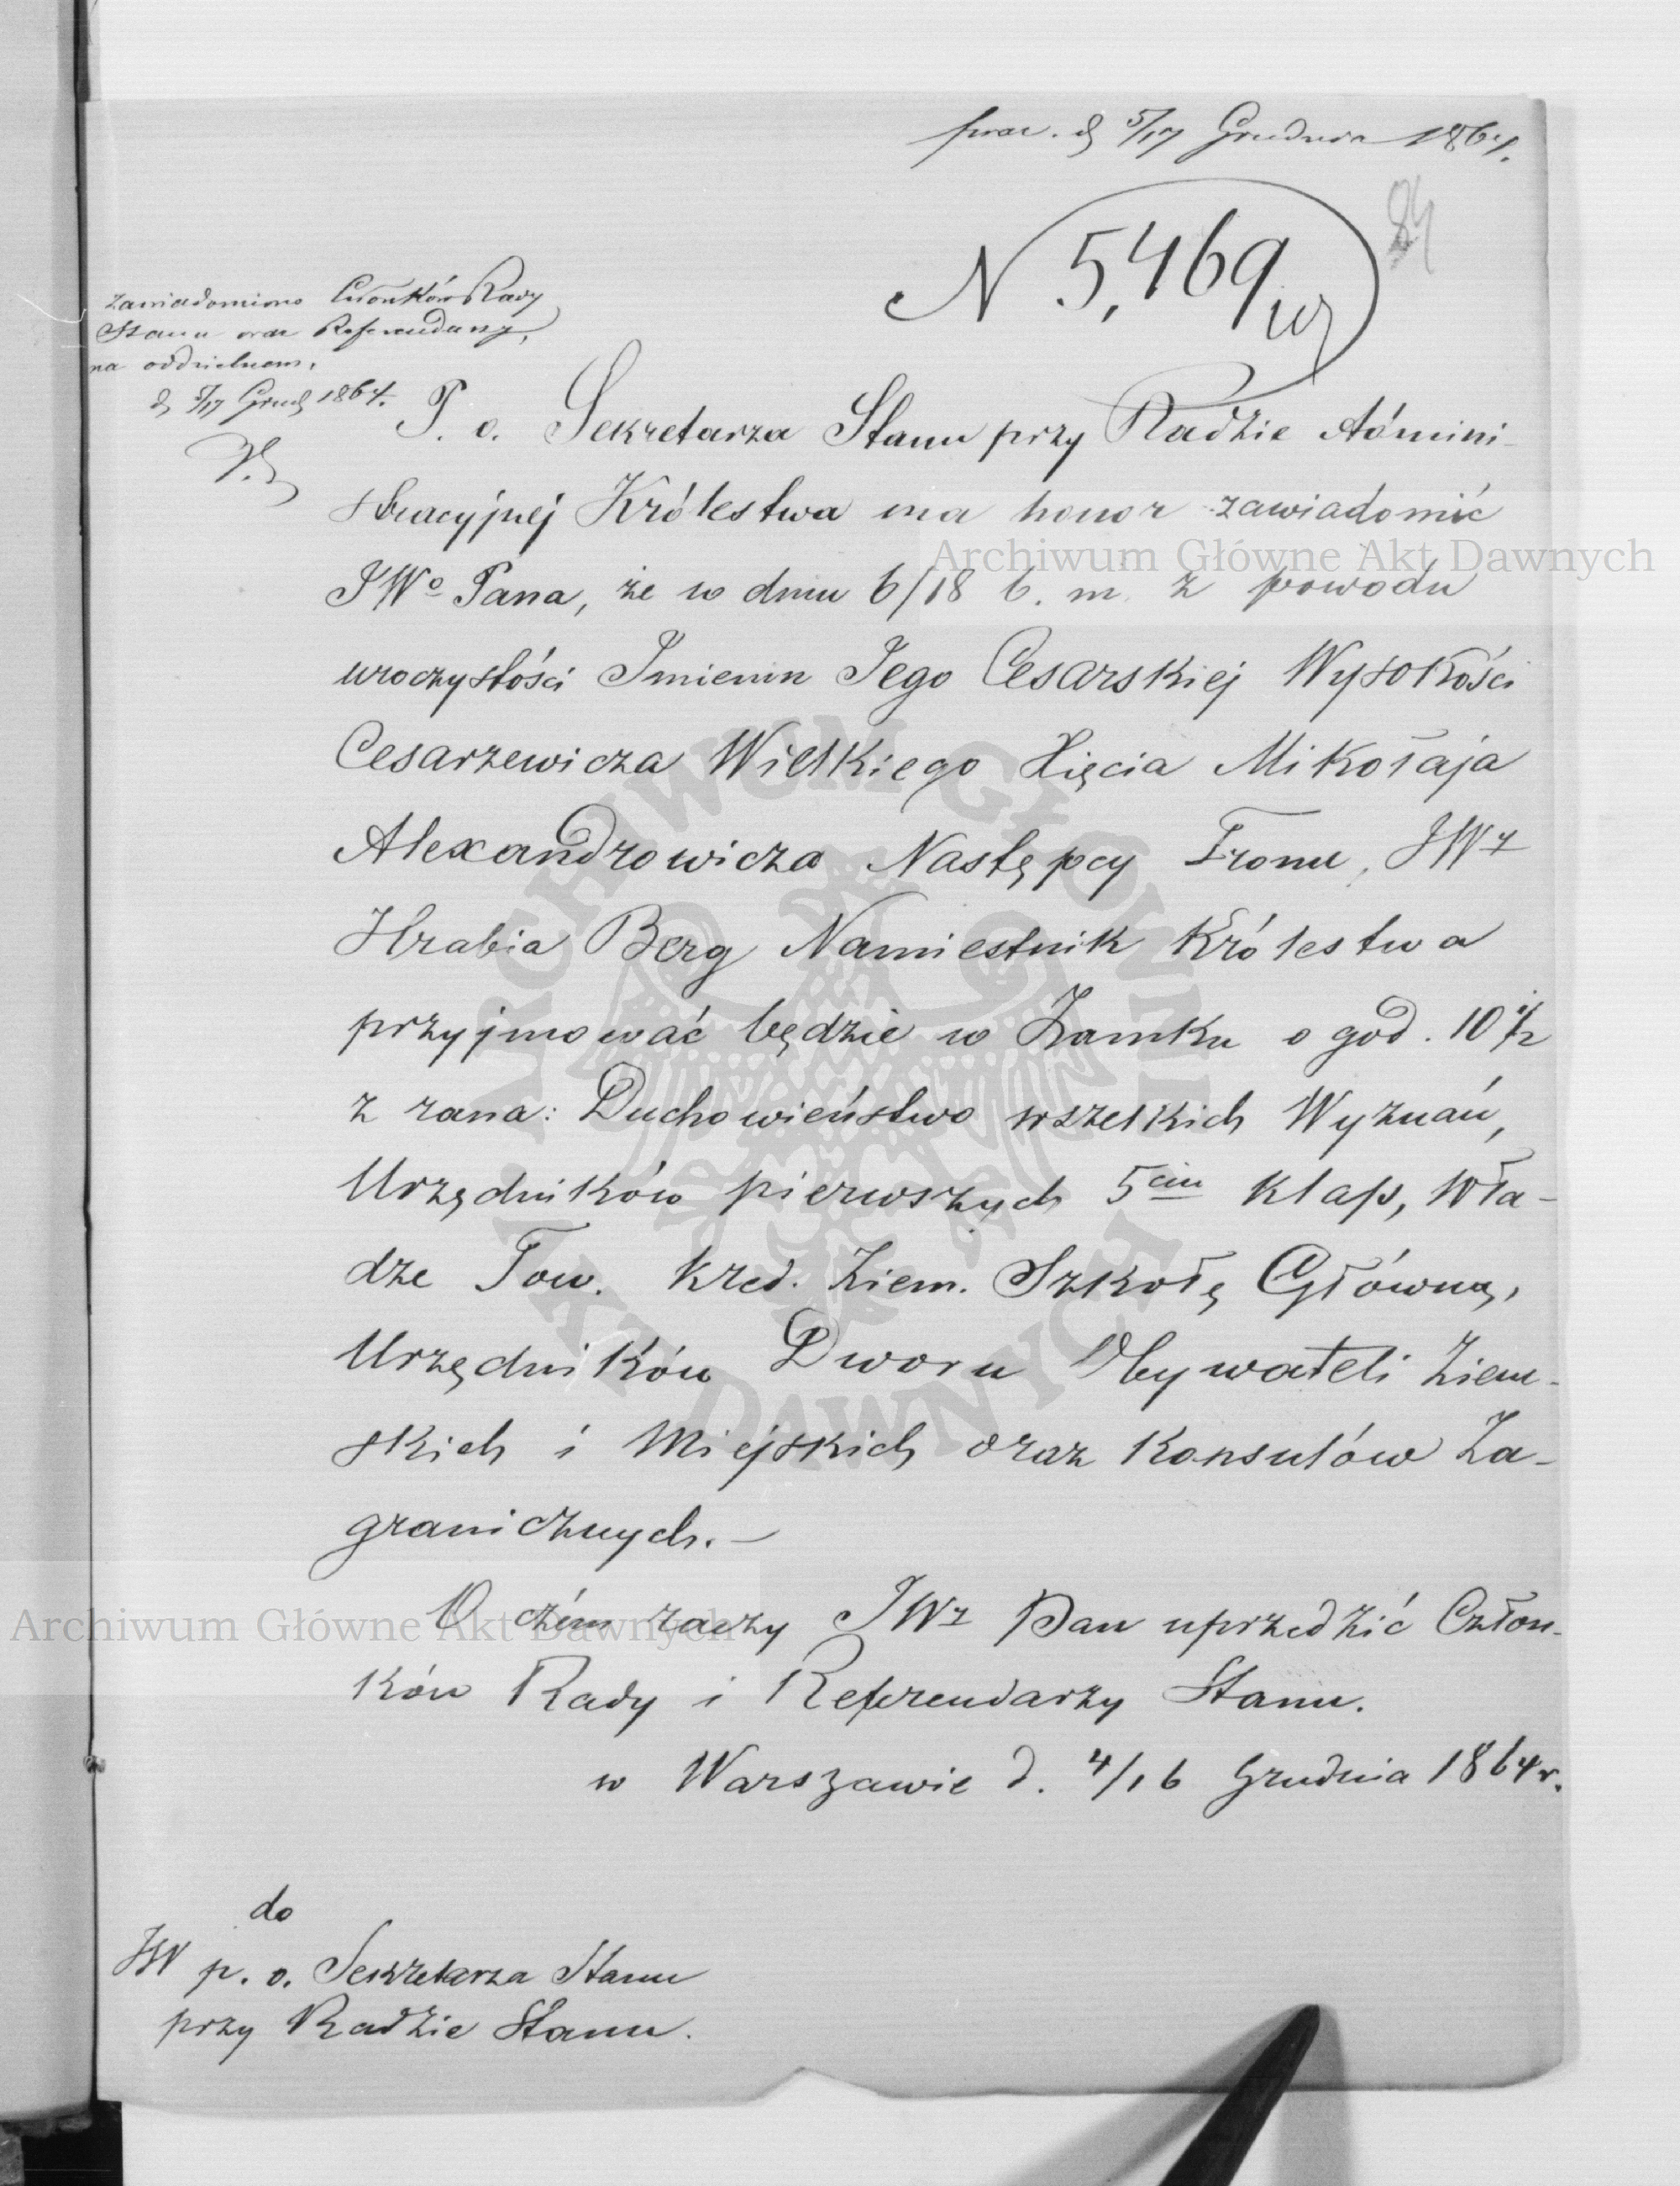 prez. d 5/17 Grudnia 1864.
84
N 5,469
zawiadomiono Członków Rady
Stanu oraz Referendarzy,
na oddzielnem.
d 5/17 Grud 1864.
P. o. Sekretarza Stanu przy Radzie Admini-
stracyjnej Królestwa ma honor zawiadomić
JWo Pana, że w dniu 6/18 b. m. z powodu
uroczystości Imienin Jego Cesarskiej Wysokości
Cesarzewicza Wielkiego Xięcia Mikołaja
Alexandrowicza Następcy Tronu, JWz
Hrabia Berg Namiestnik Królestwa
przyjmować będzie w Zamku o god. 10 1/2
z rana: Duchowieństwo wszelkich Wyznań,
Urzędników pierwszych 5ciu klass, Wła-
dze Tow. Kred. Ziem. Szkołę Główną,
Urzędników Dworu Obywateli Ziem-
skich i Miejskich oraz Konsulów Za-
granicznych.—
O czém raczy JWz Pan uprzedzić Człon-
ków Rady i Referendarzy Stanu.
w Warszawie d. 4/16 Grudnia 1864 r.
do
JW p. o. Sekretarza Stanu
przy Radzie Stanu.
Archiwum Główne Akt Dawnych
ARCHIWUM GŁÓWNE AKT DAWNYCH
Archiwum Główne Akt Dawnych